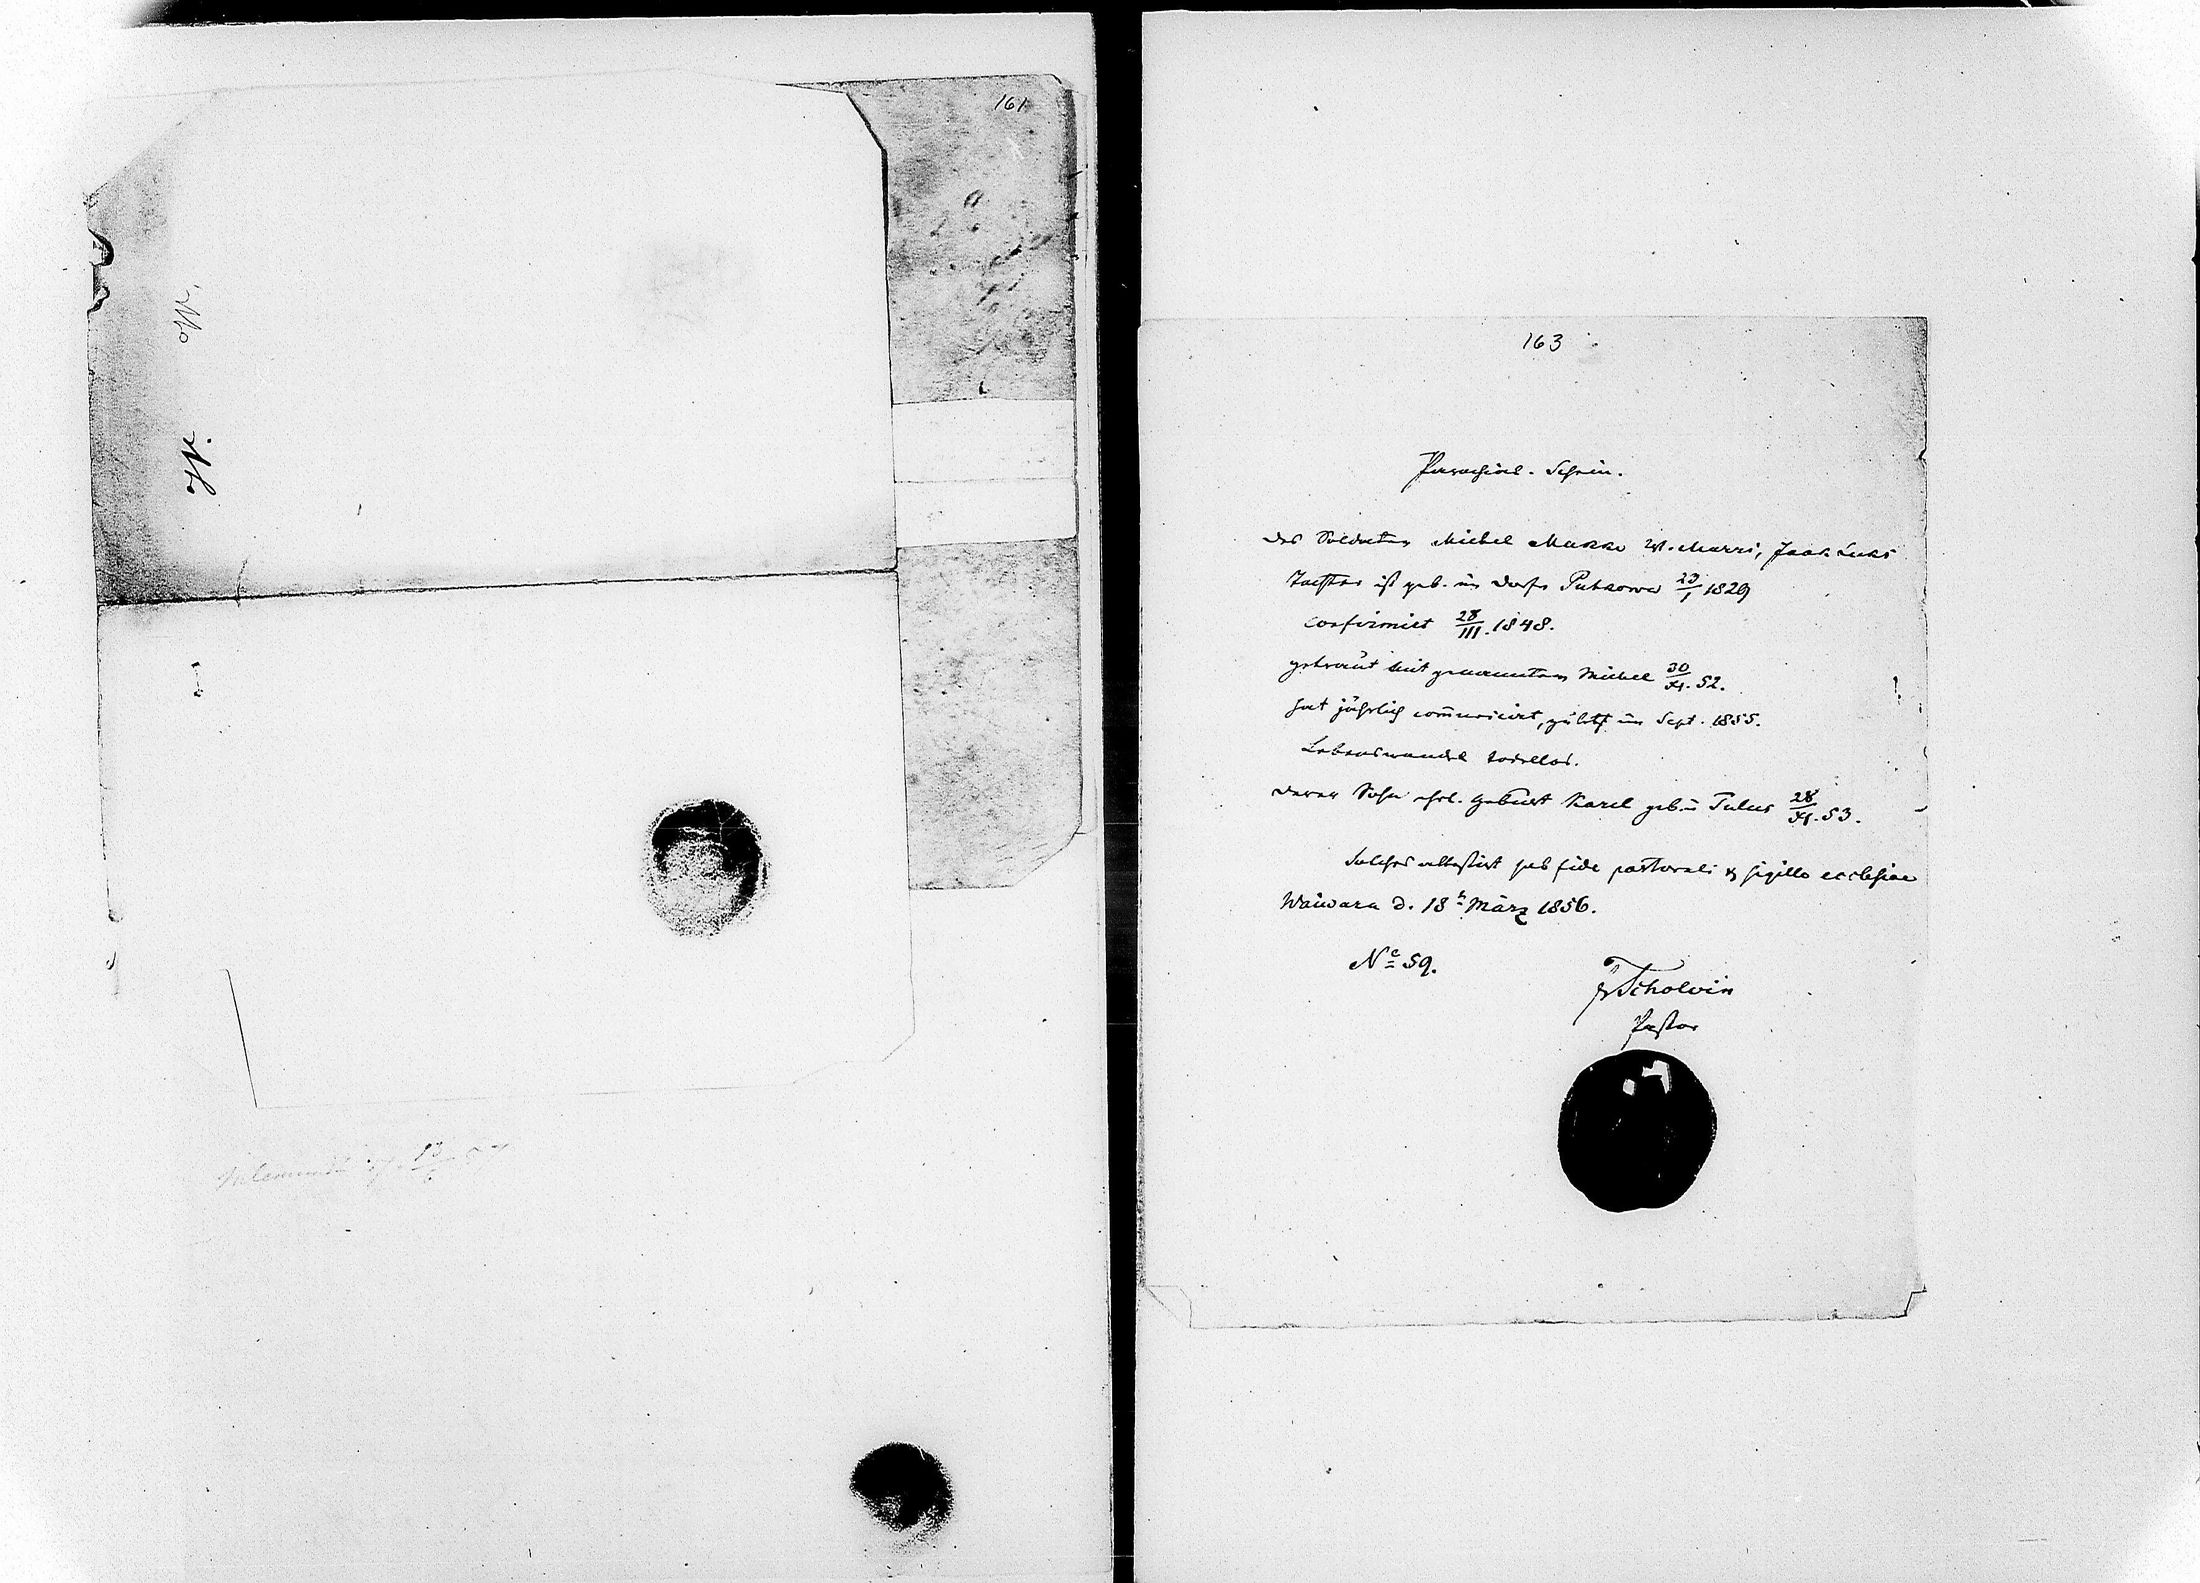 161
163
Parochial-Schein.
Des Soldaten Michel Makko W. Marri, Jaak Luks
Tochter ist geb. im Dorfe Putkowa 29/I 1829
confirmirt 28/III. 1848.
getraut mit genanntem Michel 30/XI. 52.
hat jährlich communicirt, zuletzt im Sept. 1855.
Lebenswandel tadellos.
Deren Sohn ehel. Geburt Karel geb. 28/XI. 53.
Solches attestirt sub fide pastorali & sigillo ecclesiae
Waiwara d. 18t März 1856.
No 59.
Scholvin
Pastor